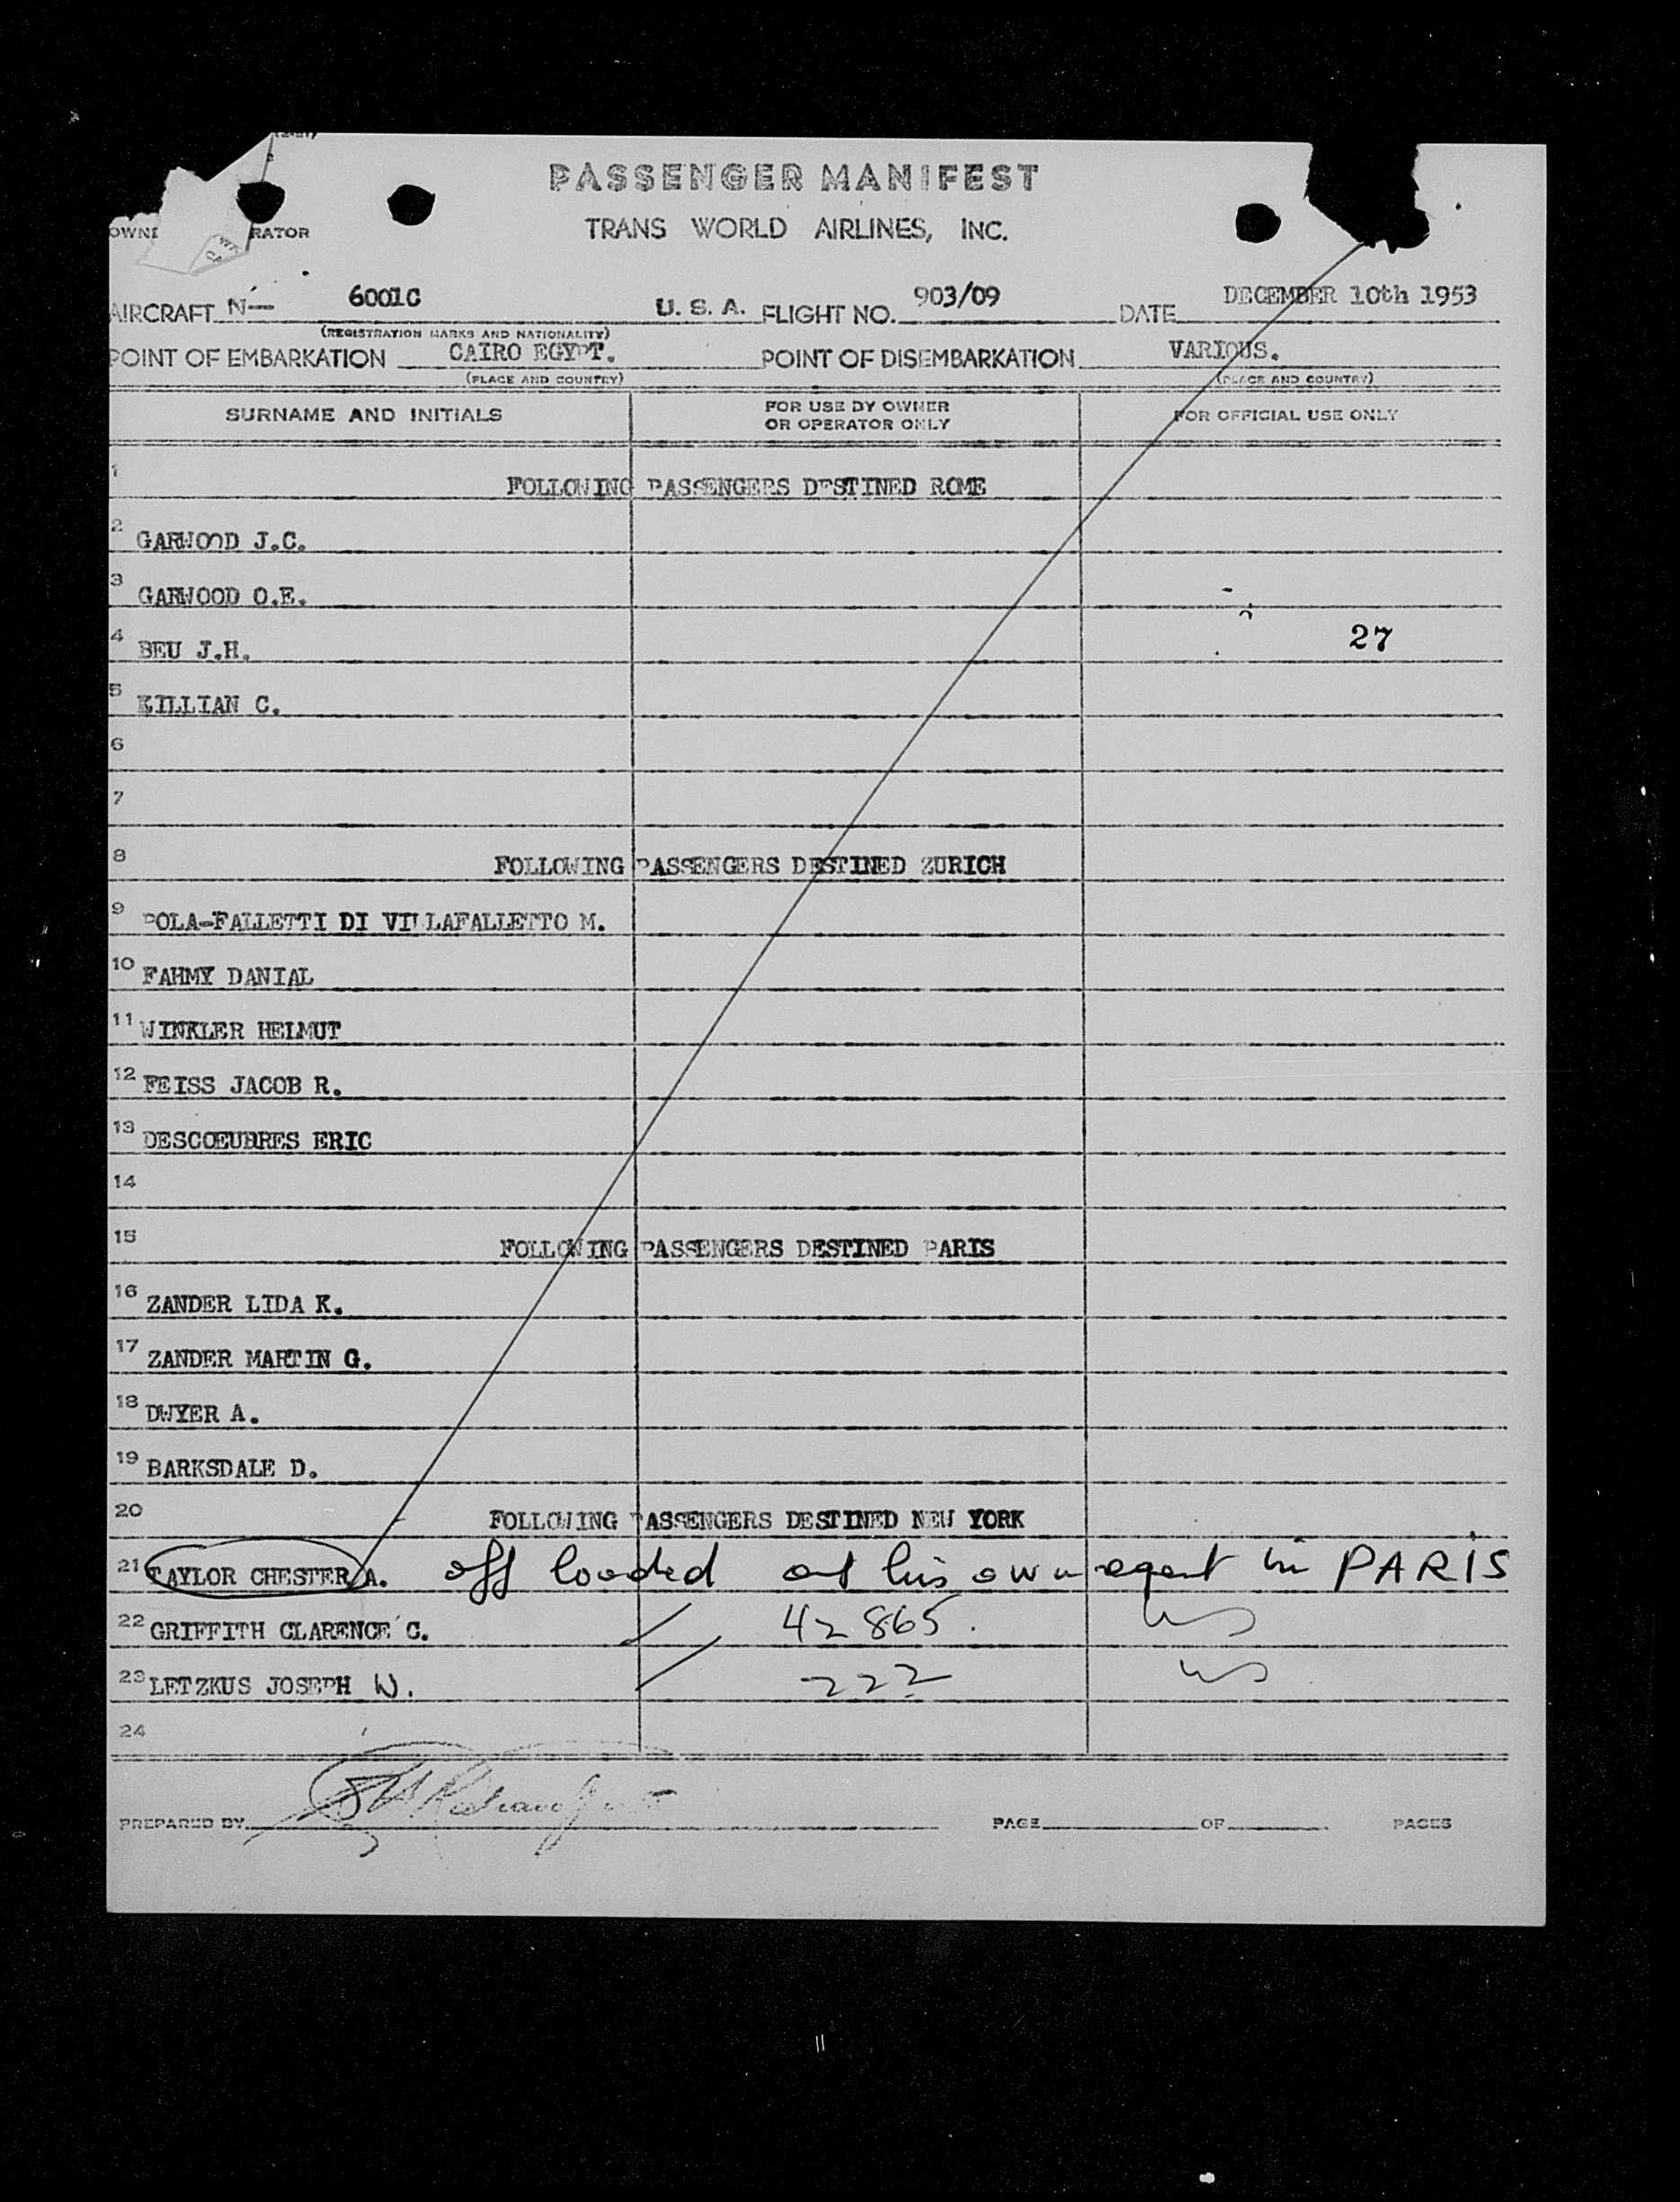 PASSENGER MANIFEST
TRANS WORLD AIRLINES, INC.
AIRCRAFT N— 6001C U. S. A. FLIGHT NO. 903/09 DATE DECEMBER 10th 1953
(REGISTRATION MARKS AND NATIONALITY)
POINT OF EMBARKATION CAIRO EGYPT. POINT OF DISEMBARKATION VARIOUS.
(PLACE AND COUNTRY) (PLACE AND COUNTRY)
SURNAME AND INITIALS FOR USE BY OWNER OR OPERATOR ONLY FOR OFFICIAL USE ONLY
1 FOLLOWING PASSENGERS DESTINED ROME
2 GARWOOD J.C.
3 GARWOOD O.E.
4 BEU J.H. 27
5 KILLIAN C.
6
7
8 FOLLOWING PASSENGERS DESTINED ZURICH
9 POLA-FALLETTI DI VILLAFALLETTO M.
10 FAHMY DANIAL
11 WINKLER HELMUT
12 FEISS JACOB R.
13 DESCOEUDRES ERIC
14
15 FOLLOWING PASSENGERS DESTINED PARIS
16 ZANDER LIDA K.
17 ZANDER MARTIN G.
18 DWYER A.
19 BARKSDALE D.
20 FOLLOWING PASSENGERS DESTINED NEW YORK
21 TAYLOR CHESTER A. off loaded at his own in PARIS
22 GRIFFITH CLARENCE C. 42865.
23 LETZKUS JOSEPH W. 222
24
PREPARED BY PAGE OF PAGES